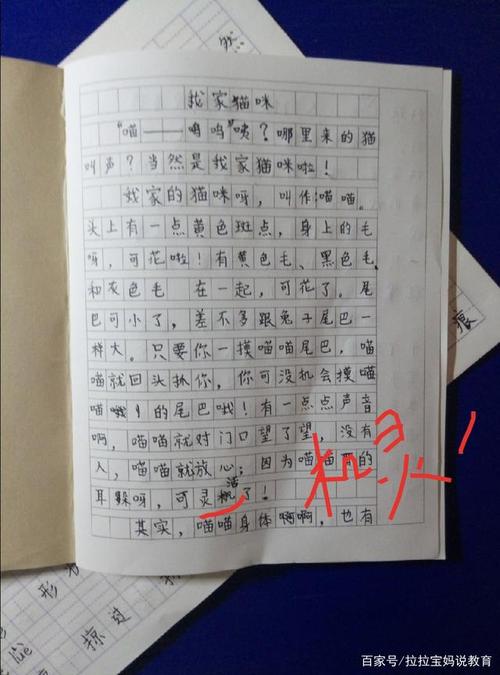 我家猫咪
“喵——呜呜”咦？哪里来的猫
叫声？当然是我家猫咪啦！
我家的猫咪呀，叫作喵喵。
头上有一点黄色斑点，身上的毛
呀，可花啦！有黄色毛、黑色毛、
和灰色毛 在一起，可花了。尾
巴可小了，差不多跟兔子尾巴一
样大。只要你一摸喵喵尾巴，喵
喵就回头抓你，你可没机会摸喵
喵 的尾巴哦！有一点点声音
啊，喵喵就对门口望了望，没有
人，喵喵就放心；因为喵喵 的
耳躲呀，可灵活了！
机灵
其实，喵喵身体啊啊，也有
然
痕
形
掠过
百家号/拉拉宝妈说教育